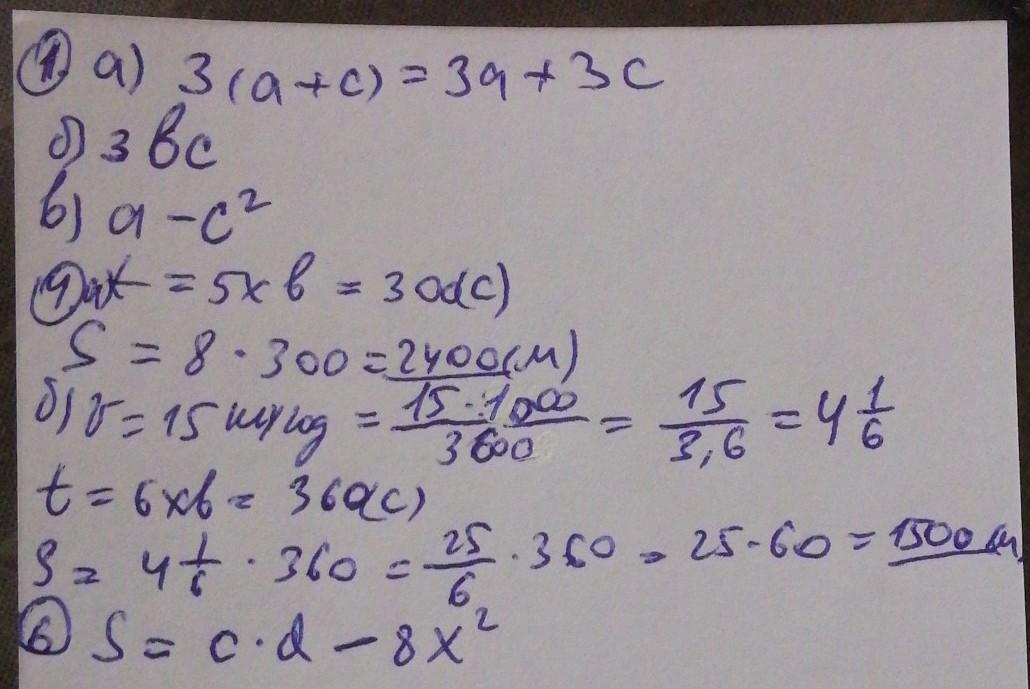 1. а) 3(a+c) = 3a + 3c
б) 3bc
в) a - c²
t = 5x6 = 300(c)
S = 8 · 300 = 2400(м)
б) v = 15 = 15·1000/3600 = 15/3,6 = 4 1/6
t = 6x6 = 360(c)
S = 4 1/6 · 360 = 25/6 · 360 = 25·60 = 1500м
6 S = c·d - 8x²